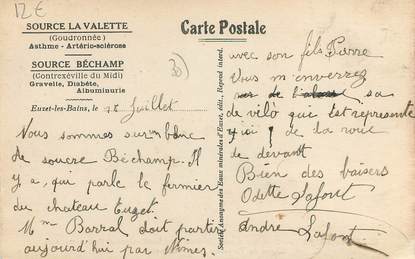 12€
SOURCE LA VALETTE
(Goudronnée)
Asthme - Artério-sclérose
SOURCE BÉCHAMP
(Contrexéville du Midi)
Gravelle, Diabète,
Albuminurie
Euzet-les-Bains, le 18 Juillet
Nous sommes sur un banc
de source Béchamp. Il
y a, qui parle le fermier
du chateau Euzet.
Mme Barral doit partir
aujourd'hui par Nimes
Carte Postale
avec son fils Pierre
Vous m'enverrez
sa
de vélo que est representé
de la roue
de devant
Bien des baisers
Odette Lafont
André Lafont
Société Anonyme des Eaux minérales d'Euzet, édit., Reprod. interd.